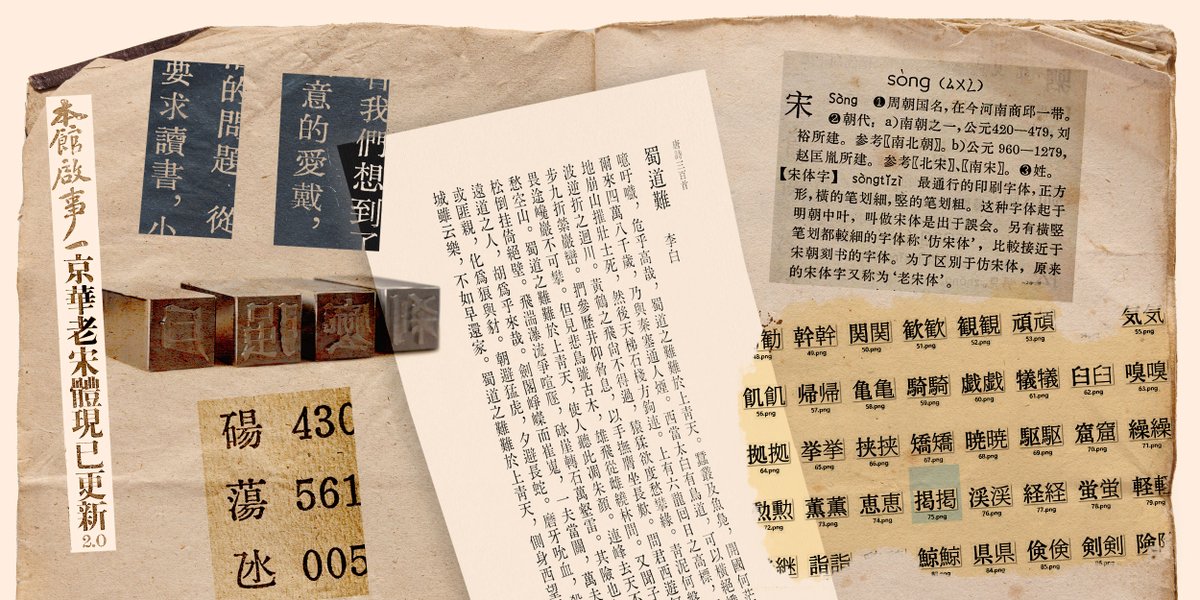 本館啟事
京華老宋體現已更新
2.0
的問題 從
要求讀書，小
我們想到了
意的愛戴，
碭 430
蕩 561
氹 005
唐詩三百首
蜀道難 李白
噫吁嚱，危乎高哉，蜀道之難難於上青天。蠶叢及魚鳧，開國何茫
爾來四萬八千歲，乃與秦塞通人煙。西當太白有鳥道，可以橫絕峨
地崩山摧壯士死，然後天梯石棧方鉤連。上有六龍回日之高標，
波逆折之迴川。黃鶴之飛尚不得過，猿猱欲度愁攀緣。青泥何盤
步九折縈巖巒。捫參歷井仰脅息，以手撫膺坐長歎。問君西遊何
畏途巉巖不可攀。但見悲鳥號古木，雄飛從雌繞林間。又聞子
愁空山。蜀道之難難於上青天，使人聽此凋朱顏。連峰去天不
松倒挂倚絕壁。飛湍瀑流爭喧豗，砯崖轉石萬壑雷。其險也
遠道之人，胡爲乎來哉。劍閣崢嶸而崔嵬，一夫當關，萬夫
或匪親，化爲狼與豺。朝避猛虎，夕避長蛇。磨牙吮血，
城雖云樂，不如早還家。蜀道之難難於上青天，側身西望
sòng (ㄙㄨㄥˋ)
宋 Sòng ❶周朝国名，在今河南商邱一帶。
❷朝代：a)南朝之一，公元420—479，刘
裕所建。参考〖南北朝〗。b)公元 960—1279，
赵匡胤所建。参考〖北宋〗、〖南宋〗。❸姓。
【宋体字】 sòngtǐzì 最通行的印刷字体，正方
形，橫的笔划細，竪的笔划粗。这种字体起于
明朝中叶，叫做宋体是出于誤会。另有橫竪
笔划都較細的字体称‘仿宋体’，比較接近于
宋朝刻书的字体。为了区別于仿宋体，原来
的宋体字又称为‘老宋体’。
勧 幹幹 関関 歓歓 観観 頑頑 気気
49.png 50.png 51.png 52.png 53.png 55.png
飢飢 帰帰 亀亀 騎騎 戯戯 犠犠 臼臼 嗅嗅
56.png 57.png 58.png 59.png 60.png 61.png 62.png 63.png
拠拠 挙挙 挟挟 矯矯 暁暁 駆駆 窟窟 繰繰
64.png 65.png 66.png 67.png 68.png 69.png 70.png 71.png
勲勲 薫薫 恵恵 掲掲 渓渓 経経 蛍蛍 軽軽
72.png 73.png 74.png 75.png 76.png 77.png 78.png 79.png
継 詣詣 鯨鯨 県県 倹倹 剣剣 険
84.png 85.png